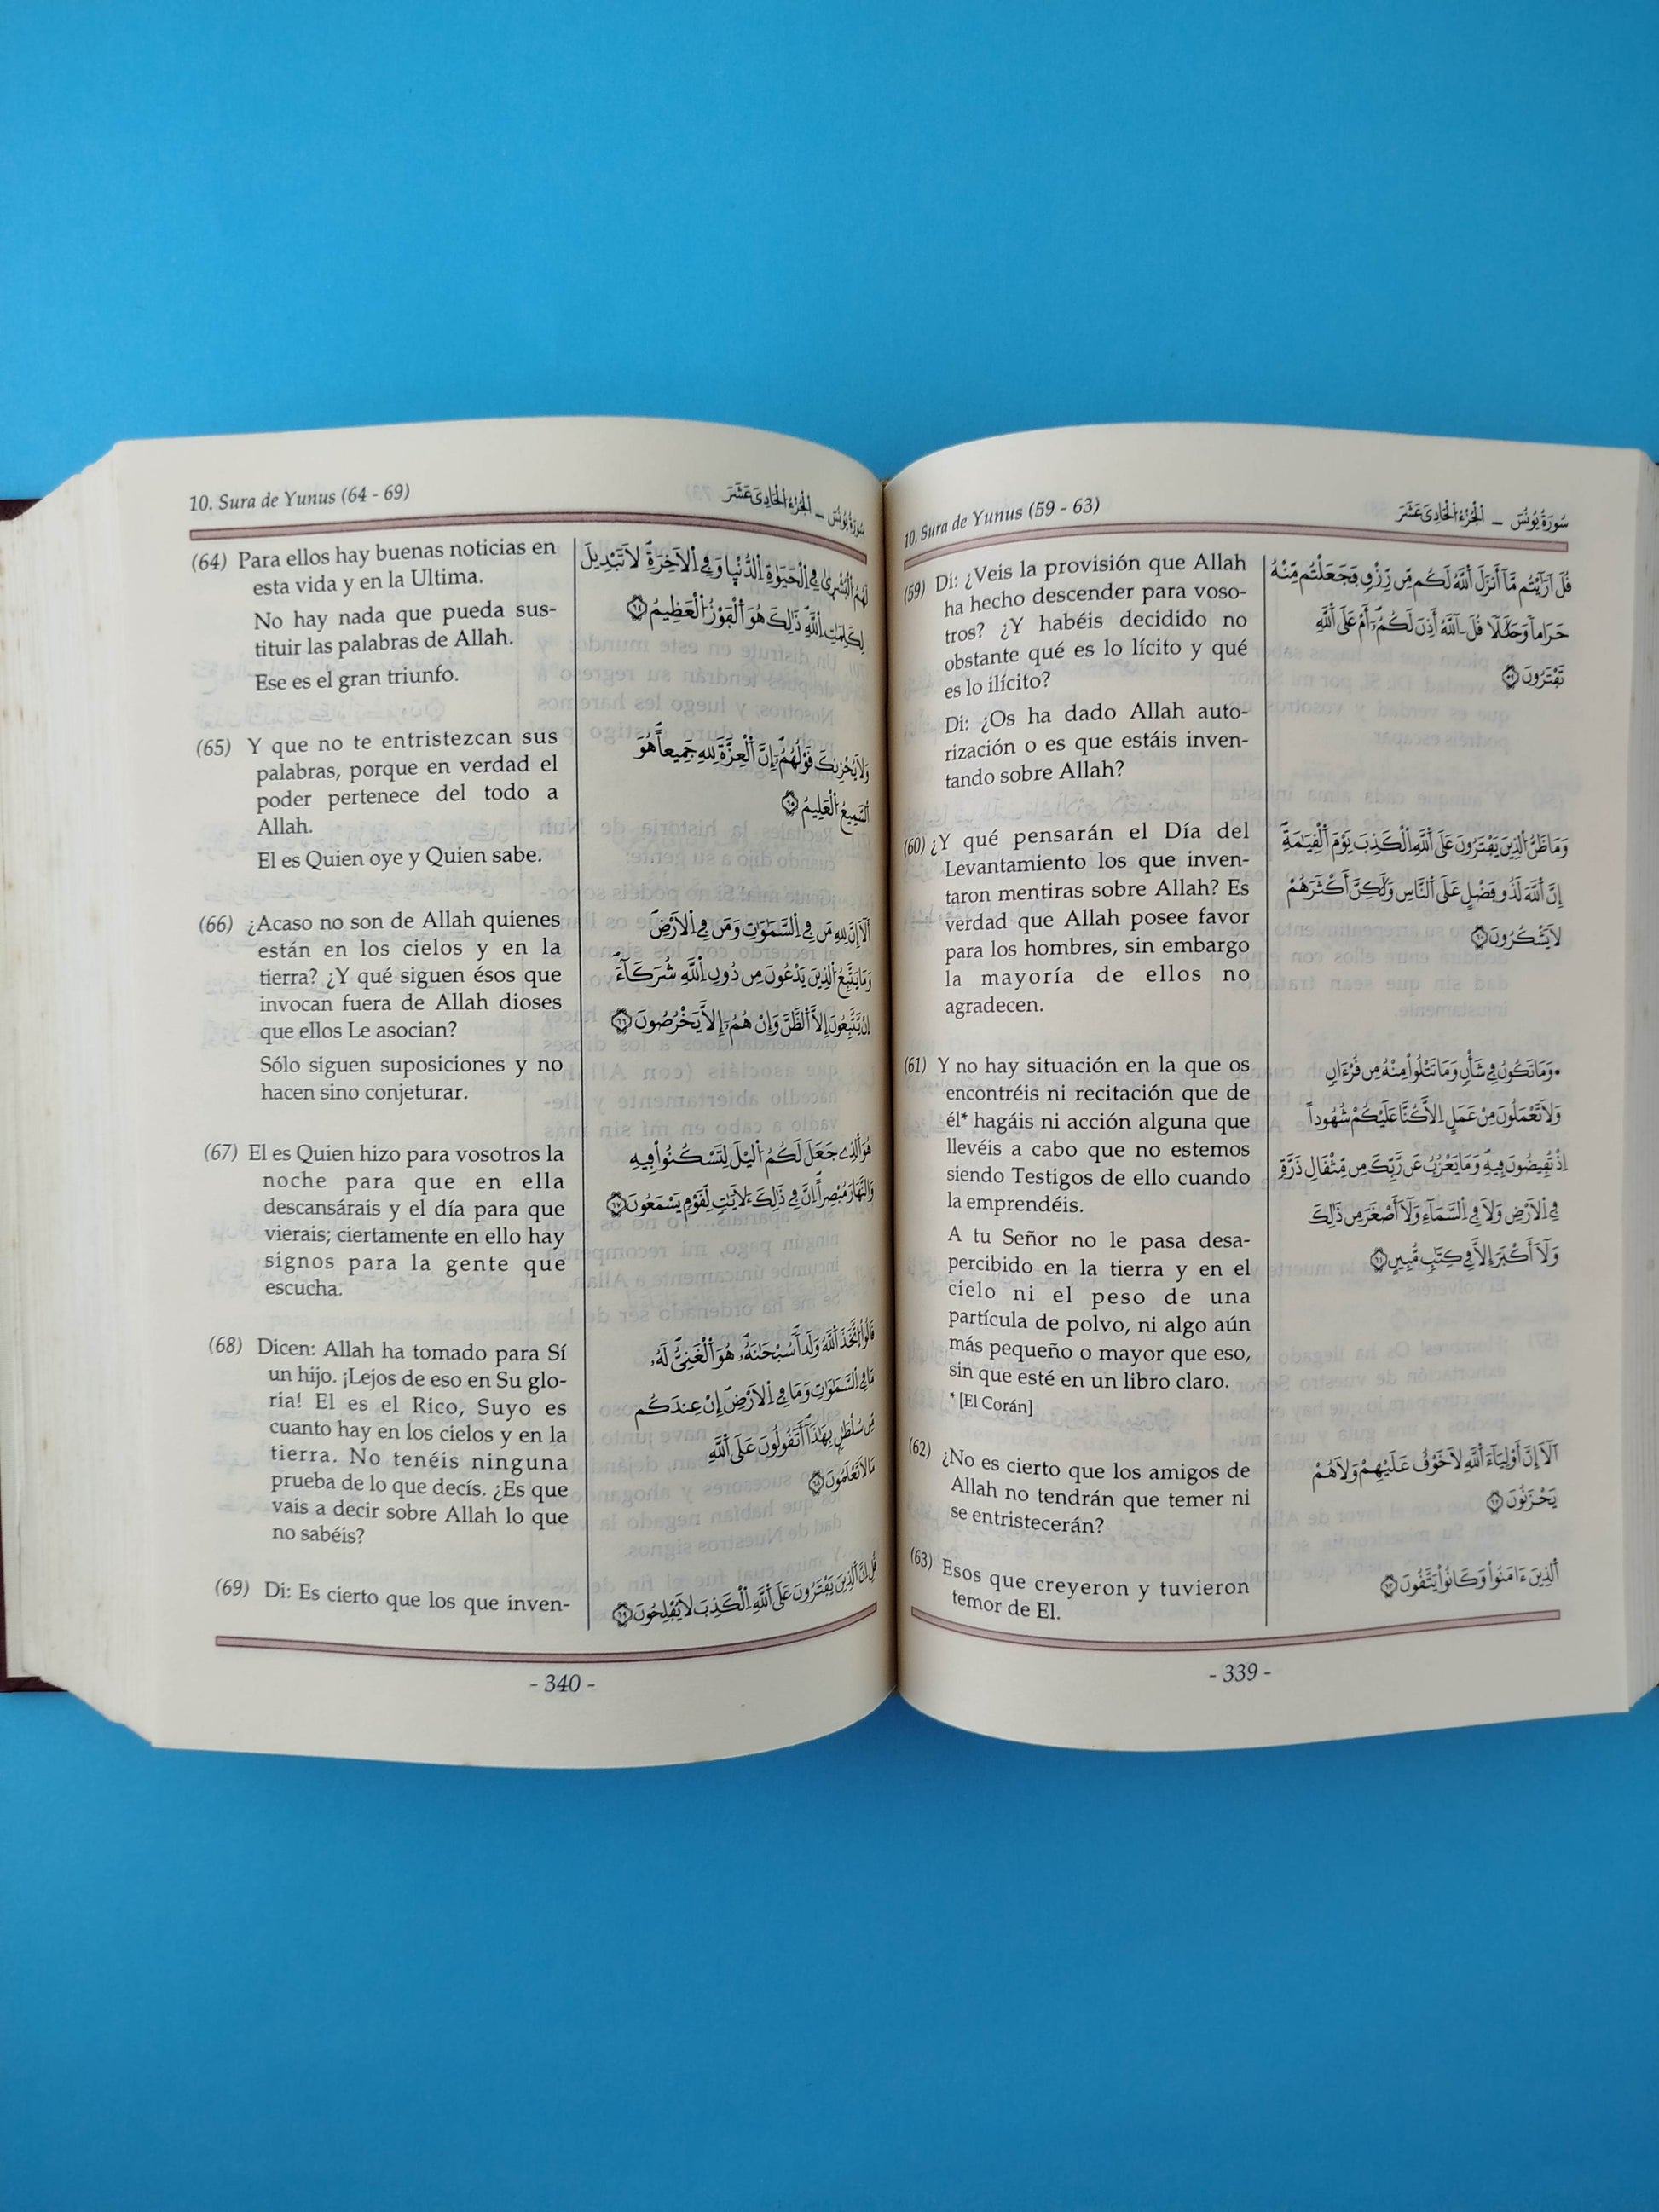 10. Sura de Yunus (59 - 63)
سُورَةُ يُونُسَ ــ الجُزْءُ الحَادِي عَشَرَ
(59) Di: ¿Veis la provisión que Allah
ha hecho descender para voso-
tros? ¿Y habéis decidido no
obstante qué es lo lícito y qué
es lo ilícito?
Di: ¿Os ha dado Allah auto-
rización o es que estáis inven-
tando sobre Allah?
قُلَ اَرَآيْتُم مَّآ أَنزَلَ اَللَّهُ لَكُم مِّن رِّزْقٍ فَجَعَلْتُم مِّنْهُ
حَرَاماً وَحَلَٰلًا قُلَ ـ آللَّهُ أَذِنَ لَكُمُۥٓ أَمْ عَلَى اَللَّهِ
تَفْتَرُونَ ٥٩
(60) ¿Y qué pensarán el Día del
Levantamiento los que inven-
taron mentiras sobre Allah? Es
verdad que Allah posee favor
para los hombres, sin embargo
la mayoría de ellos no
agradecen.
وَمَا ظَنُّ اُلذِينَ يَفْتَرُونَ عَلَى اَللَّهِ اِلْكَذِبَ يَوْمَ اَلْقِيَٰمَةِ
إِنَّ اَللَّهَ لَذُو فَضْلٍ عَلَى اَلنَّاسِ وَلَٰكِنَّ أَكْثَرَهُمْ
لَا يَشْكُرُونَ ٦٠
(61) Y no hay situación en la que os
encontréis ni recitación que de
él* hagáis ni acción alguna que
llevéis a cabo que no estemos
siendo Testigos de ello cuando
la emprendéis.
A tu Señor no le pasa desa-
percibido en la tierra y en el
cielo ni el peso de una
partícula de polvo, ni algo aún
más pequeño o mayor que eso,
sin que esté en un libro claro.
* [El Corán]
وَمَا تَكُونُ فِي شَأْنٍ وَمَا تَتْلُواْ مِنْهُ مِن قُرْءَانٍ
وَلَا تَعْمَلُونَ مِنْ عَمَلٍ اِلَّا كُنَّا عَلَيْكُمْ شُهُوداً
اِذْ تُفِيضُونَ فِيهِ وَمَا يَعْزُبُ عَن رَّبِّكَ مِن مِّثْقَالِ ذَرَّةٍ
فِي اِلَارْضِ وَلَا فِي اِلسَّمَآءِ وَلَآ أَصْغَرَ مِن ذَٰلِكَ
وَلَآ أَكْبَرَ إِلَّا فِي كِتَٰبٍ مُّبِينٍ ٦١
(62) ¿No es cierto que los amigos de
Allah no tendrán que temer ni
se entristecerán?
أَلَآ إِنَّ أَوْلِيَآءَ اَللَّهِ لَا خَوْفٌ عَلَيْهِمْ وَلَا هُمْ
يَحْزَنُونَ ٦٢
(63) Esos que creyeron y tuvieron
temor de El.
اَلذِينَ ءَامَنُواْ وَكَانُواْ يَتَّقُونَ ٦٣
- 339 -
10. Sura de Yunus (64 - 69)
سُورَةُ يُونُسَ ــ الجُزْءُ الحَادِي عَشَرَ
(64) Para ellos hay buenas noticias en
esta vida y en la Ultima.
No hay nada que pueda sus-
tituir las palabras de Allah.
Ese es el gran triunfo.
لَهُمُ اُلْبُشْرَىٰ فِي اِلْحَيَوٰةِ اِلدُّنْيَا وَفِي اِلَاخِرَةِ لَا تَبْدِيلَ
لِكَلِمَٰتِ اِللَّهِ ذَٰلِكَ هُوَ اَلْفَوْزُ اُلْعَظِيمُ ٦٤
(65) Y que no te entristezcan sus
palabras, porque en verdad el
poder pertenece del todo a
Allah.
El es Quien oye y Quien sabe.
وَلَا يُحْزِنكَ قَوْلُهُمُۥٓ إِنَّ اَلْعِزَّةَ لِلهِ جَمِيعاً هُوَ
اَلسَّمِيعُ اُلْعَلِيمُ ٦٥
(66) ¿Acaso no son de Allah quienes
están en los cielos y en la
tierra? ¿Y qué siguen ésos que
invocan fuera de Allah dioses
que ellos Le asocian?
Sólo siguen suposiciones y no
hacen sino conjeturar.
أَلَآ إِنَّ لِلهِ مَن فِي اِلسَّمَٰوَٰتِ وَمَن فِي اِلَارْضِ
وَمَا يَتَّبِعُ اُلذِينَ يَدْعُونَ مِن دُونِ اِللَّهِ شُرَكَآءَ
اِنْ يَّتَّبِعُونَ إِلَّا اَلظَّنَّ وَإِنْ هُمُۥٓ إِلَّا يَخْرُصُونَ ٦٦
(67) El es Quien hizo para vosotros la
noche para que en ella
descansárais y el día para que
vierais; ciertamente en ello hay
signos para la gente que
escucha.
هُوَ اَلذِي جَعَلَ لَكُمُ اُليْلَ لِتَسْكُنُواْ فِيهِ
وَالنَّهَارَ مُبْصِراً اِنَّ فِي ذَٰلِكَ ءَلَايَٰتٍ لِّقَوْمٍ يَسْمَعُونَ ٦٧
(68) Dicen: Allah ha tomado para Sí
un hijo. ¡Lejos de eso en Su glo-
ria! El es el Rico, Suyo es
cuanto hay en los cielos y en la
tierra. No tenéis ninguna
prueba de lo que decís. ¿Es que
vais a decir sobre Allah lo que
no sabéis?
قَالُواْ اُتَّخَذَ اَللَّهُ وَلَداً سُبْحَٰنَهُۥ هُوَ اَلْغَنِيُّ لَهُۥ
مَا فِي اِلسَّمَٰوَٰتِ وَمَا فِي اِلَارْضِ إِنْ عِندَكُم
مِّن سُلْطَٰنٍ بِهَٰذَآ أَتَقُولُونَ عَلَى اَللَّهِ
مَا لَا تَعْلَمُونَ ٦٨
(69) Di: Es cierto que los que inven-
قُلِ اِنَّ اَلذِينَ يَفْتَرُونَ عَلَى اَللَّهِ اِلْكَذِبَ لَا يُفْلِحُونَ ٦٩
- 340 -